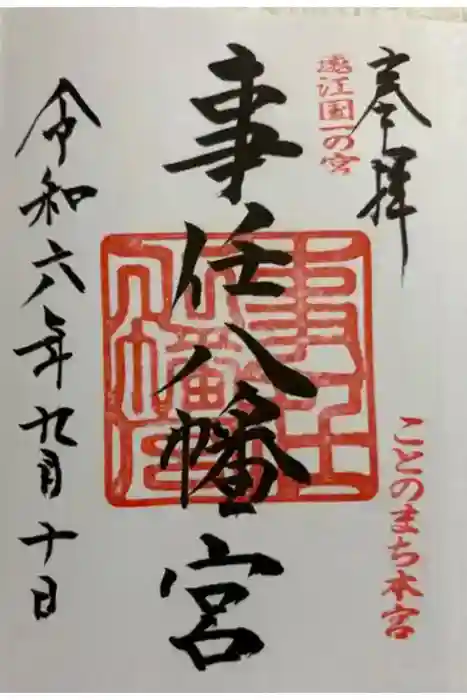 奉拝
遠江国一の宮
ことのまち本宮
事任八幡宮
令和六年九月十日